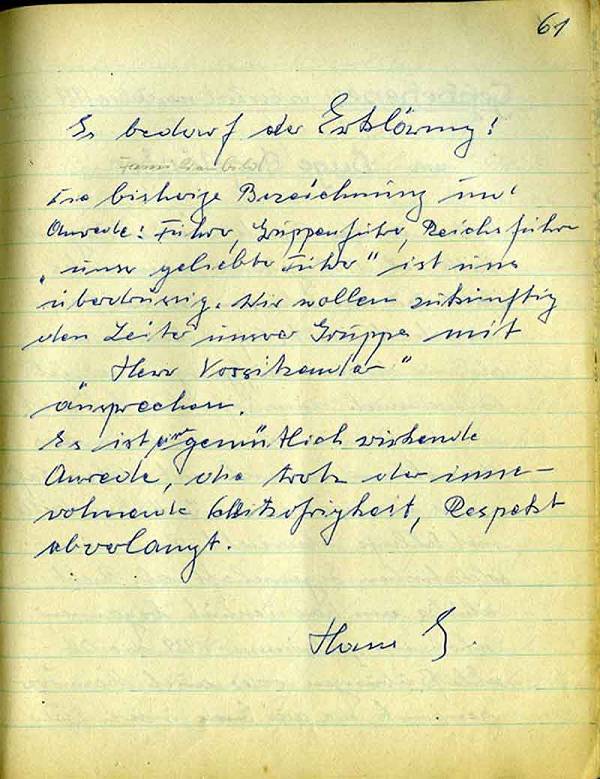 61
Es bedarf der Erklärung!
Die bisherige Bezeichnung und
Anrede: Führer, Gruppenführer, Reichsführer
"unser geliebter Führer" ist uns
überdrüssig. Wir wollen zukünftig
den Leiter unserer Gruppe mit
"Herr Vorsitzender"
ansprechen.
Es ist eine gemütlich wirkende
Anrede, die trotz der inne-
wohnende, Respekt
abverlangt.
Hans G.